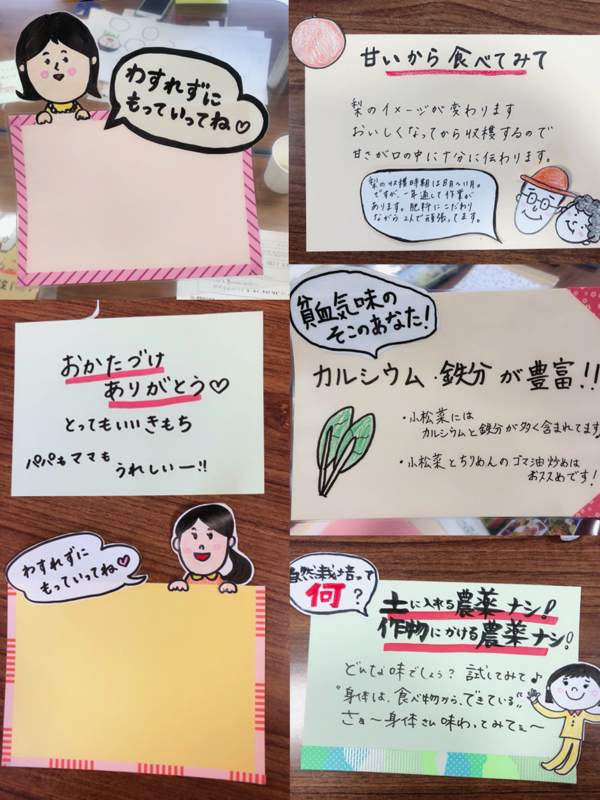 わすれずに
もっていってね♡
甘いから食べてみて
梨のイメージが変わります
おいしくなってから収穫するので
甘さが口の中に十分に伝わります。
梨の収穫時期は8月〜11月。
ですが、一年通して作業が
あります。肥料にこだわり
ながら2人で頑張ってます。
おかたづけ
ありがとう♡
とってもいいきもち
パパもママも
うれしいー!!
貧血気味の
そこのあなた!
カルシウム・鉄分が豊富!!
・小松菜には
カルシウムと鉄分が多く含まれてます
・小松菜とちりめんのゴマ油炒めは
おススめです!
わすれずに
もっていってね♡
自然栽培って
何?
土に入れる農薬ナシ!
作物にかける農薬ナシ!
どんな味でしょう?試してみて♪
"身体は、食べ物から、できている"
さぁ〜身体さん味わってみてぇ〜